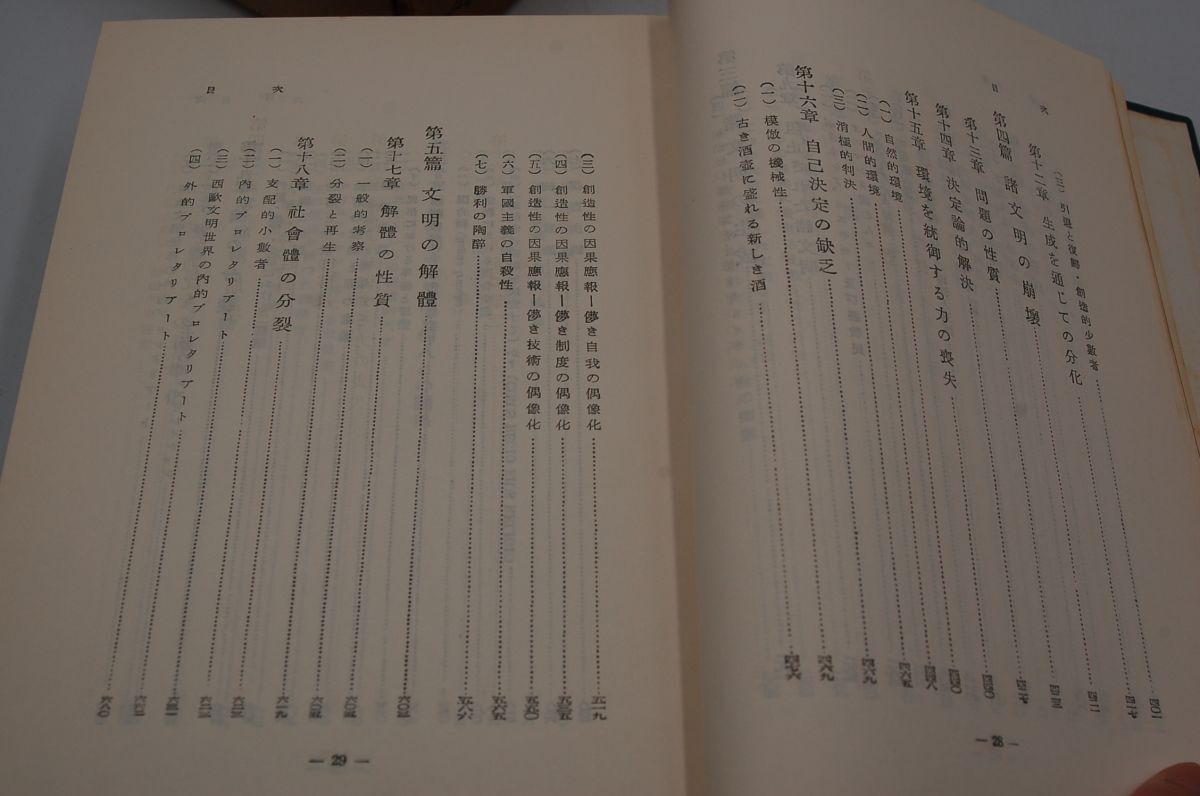 目次
(三) 引退と復歸・創造的少數者
第十二章 生成を通じての分化
第四篇 諸文明の崩壞
第十三章 問題の性質
第十四章 決定論的解決
第十五章 環境を統御する力の喪失
(一) 自然的環境
(二) 人間的環境
(三) 消極的判決
第十六章 自己決定の缺乏
(一) 模倣の機械性
(二) 古き酒壺に盛れる新しき酒
— 28 —
目次
(三) 創造性の因果應報—儚き自我の偶像化 五一九
(四) 創造性の因果應報—儚き制度の偶像化
(五) 創造性の因果應報—儚き技術の偶像化
(六) 軍國主義の自殺性
(七) 勝利の陶醉
第五篇 文明の解體
第十七章 解體の性質
(一) 一般的考察
(二) 分裂と再生
第十八章 社會體の分裂 六一九
(一) 支配的小數者
(二) 內的プロレタリアート
(三) 西歐文明世界の內的プロレタリアート
(四) 外的プロレタリアート
— 29 —